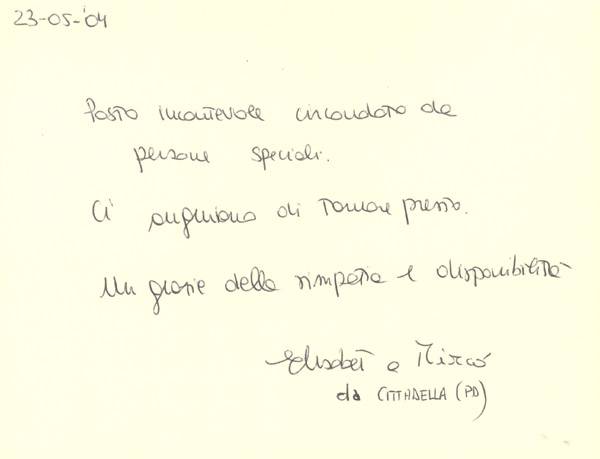 23-05-'04
Posto incantevole circondato da
persone speciali.
Ci auguriamo di tornare presto.
Un grazie della simpatia e disponibilità
e
da CITTADELLA (PD)